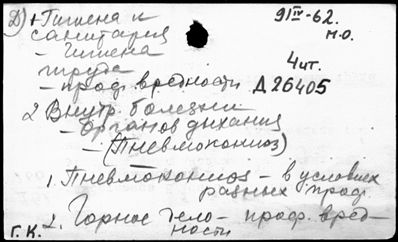 Д) 1 Гигиена и
санитария
- гигиена
труда
- проф. вредности
9/IV-62.
м.о.
4 чит.
Д 26405
2 Внутр. болезни
- органов дыхания
(Пневмокониоз)
1. Пневмокониоз - в условиях
разных проф.
Г. К. 2. Горное дело - проф. вред-
ности